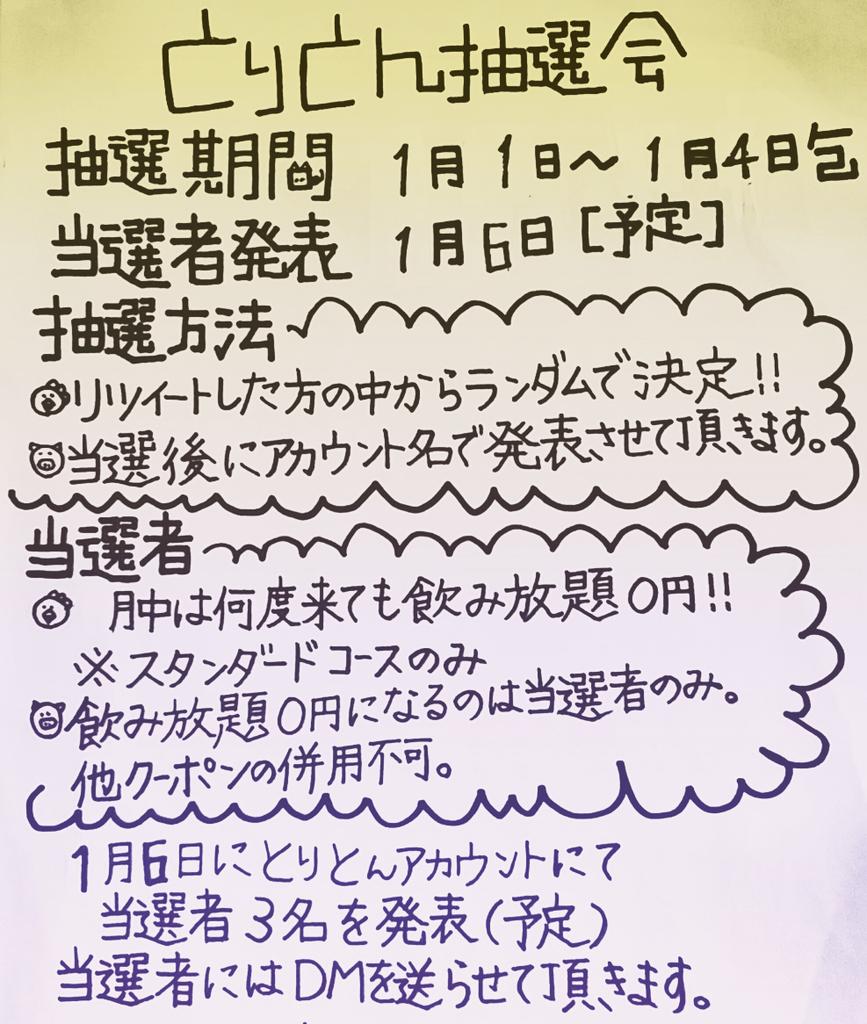 とりとん抽選会
抽選期間 1月1日～1月4日迄
当選者発表 1月6日[予定]
抽選方法
リツイートした方の中からランダムで決定!!
当選後にアカウント名で発表させて頂きます。
当選者
月中は何度来ても飲み放題0円!!
※スタンダードコースのみ
飲み放題0円になるのは当選者のみ。
他クーポンの併用不可。
1月6日にとりとんアカウントにて
当選者3名を発表(予定)
当選者にはDMを送らせて頂きます。